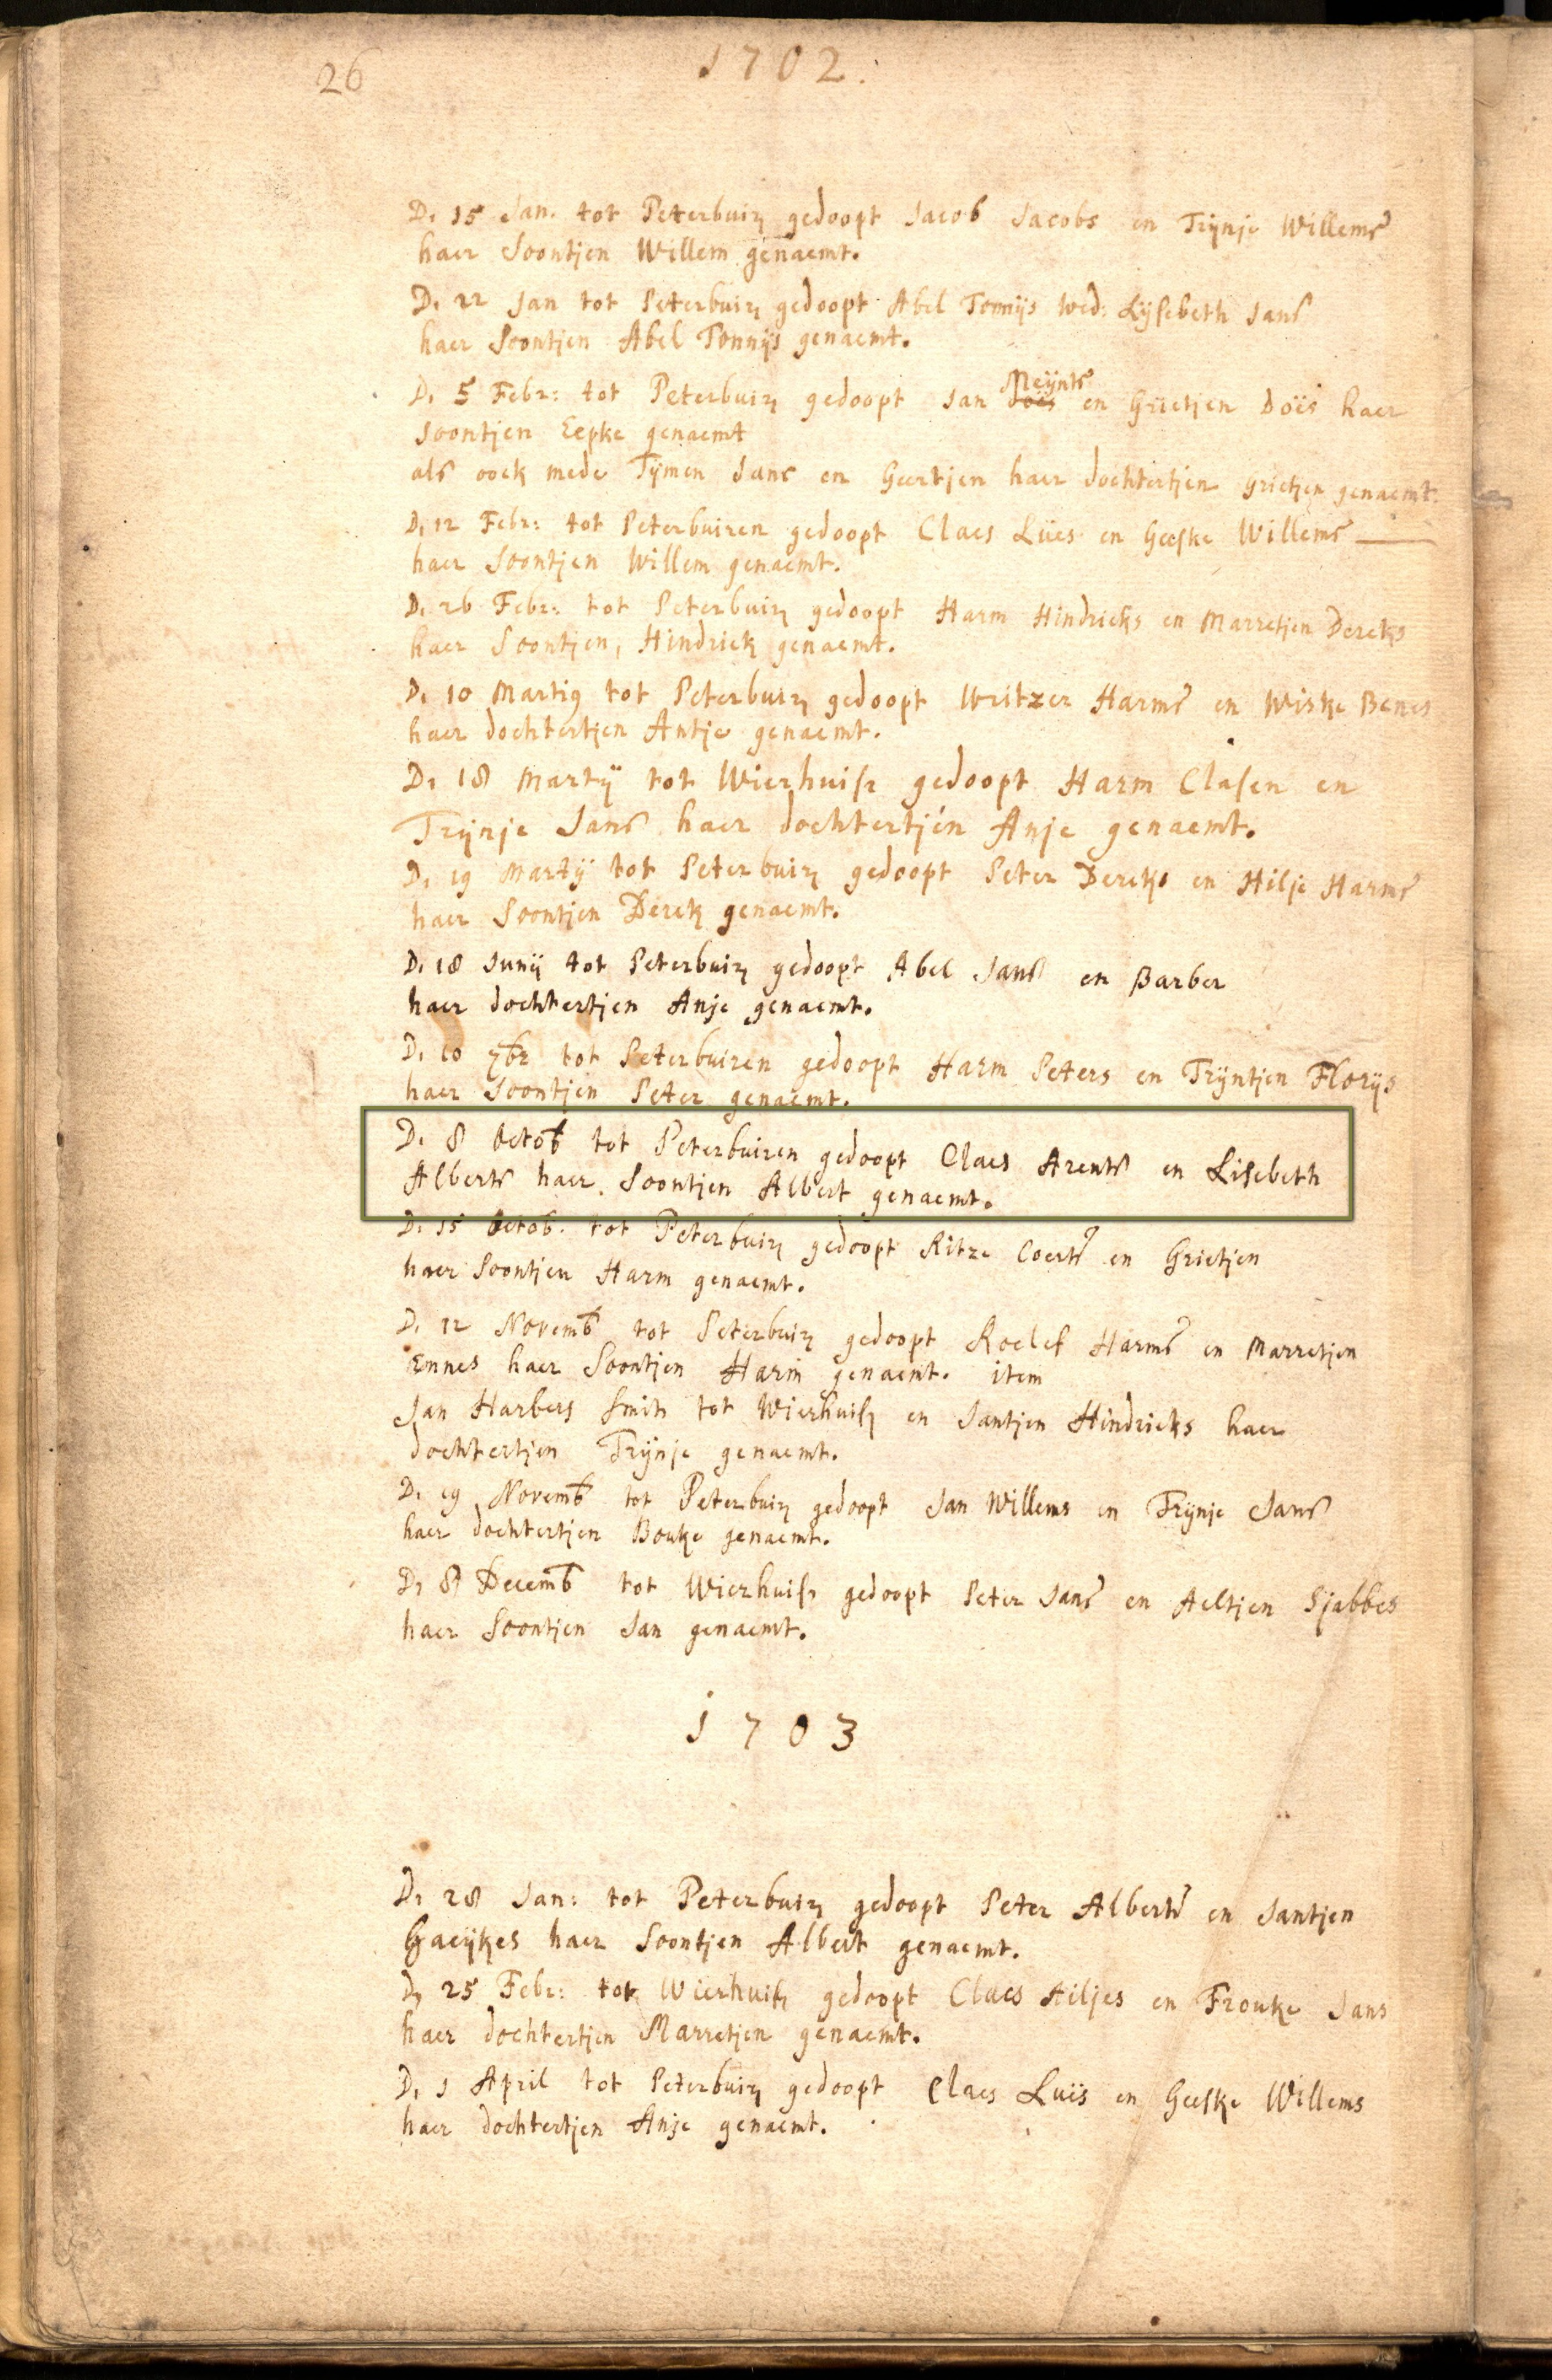 26
1702.
D. 15 Jan. tot Peterbuirn gedoopt Jacob Jacobs en Trijnje Willems
haer Soontjen Willem genaemt.
D. 22 Jan tot Peterbuirn gedoopt Abel Tonnijs wed: Lijsebeth Jans
haer Soontjen Abel Tonnijs genaemt.
D. 5 Febr: tot Peterbuirn gedoopt Jan Meijnts en Grietjen Doïs haer
Soontjen Eepke genaemt
als oock mede Tijmen Jans en Geertjen haer dochtertjen grietjen genaemt.
D. 12 Febr: tot Peterbuiren gedoopt Claes Luïes en Geeske Willems
haer Soontjen Willem genaemt.
D. 26 Febr: tot Peterbuirn gedoopt Harm Hindricks en Marretjen Dercks
haer Soontjen, Hindrick genaemt.
D. 10 Martig tot Peterbuirn gedoopt Writzer Harms en Wiske Benes
haer dochtertjen Antje genaemt.
D. 18 Martij tot Wierhuisn gedoopt Harm Clasen en
Trijnje Jans haer dochtertjen Anje genaemt.
D. 19 Martij tot Peterbuirn gedoopt Peter Dercks en Hilje Harms
haer Soontjen Derck genaemt.
D. 18 Junij tot Peterbuirn gedoopt Abel Jans en Barber
haer dochtertjen Anje genaemt.
D. 10 7br tot Peterbuiren gedoopt Harm Peters en Trijntjen Florijs
haer Soontjen Peter genaemt.
D. 8 Octob tot Peterbuiren gedoopt Claes Arents en Lisebeth
Alberts haer Soontjen Albert genaemt.
D. 15 Octob. tot Peterbuirn gedoopt Ritze Coerts en Grietjen
haer Soontjen Harm genaemt.
D. 12 Novemb tot Peterbuirn gedoopt Roelef Harms en Marretjen
Ennes haer Soontjen Harm genaemt. item
Jan Harbers Smit tot Wierhuisn en Jantjen Hindricks haer
dochtertjen Trijnje genaemt.
D. 19 Novemb tot Peterbuirn gedoopt Jan Willems en Trijnje Jans
haer dochtertjen Bouke genaemt.
D. 8 Decemb tot Wierhuisn gedoopt Peter Jans en Aeltjen Sjabbes
haer Soontjen Jan genaemt.
1703
D. 28 Jan: tot Peterbuirn gedoopt Peter Alberts en Jantjen
Gaeijkes haer Soontjen Albert genaemt.
D. 25 Febr: tot Wierhuisn gedoopt Claes Ailjes en Frouke Jans
haer dochtertjen Marretjen genaemt.
D. 1 April tot Peterbuirn gedoopt Claes Luïs en Geeske Willems
haer dochtertjen Anje genaemt.